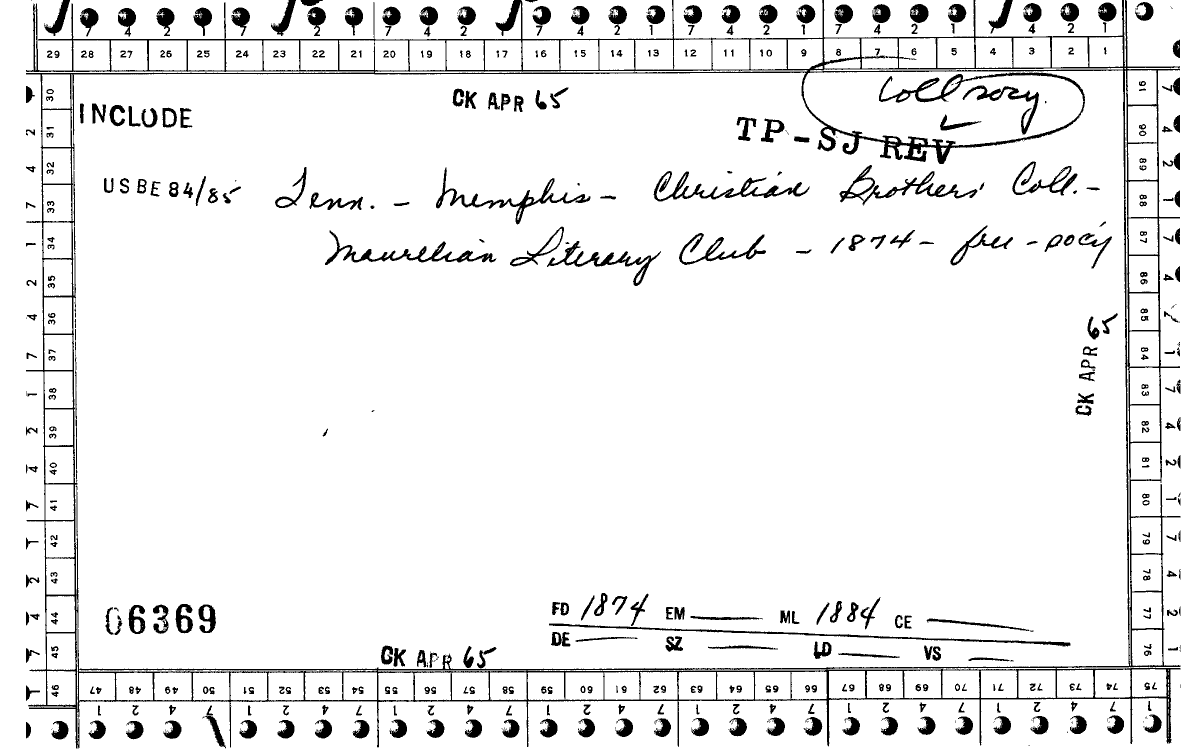 7 4 2 1 7 4 2 1 7 4 2 1 7 4 2 1 7 4 2 1 7 4 2 1 7 4 2 1
29 28 27 26 25 24 23 22 21 20 19 18 17 16 15 14 13 12 11 10 9 8 7 6 5 4 3 2 1
coll socy.
CK APR 65
INCLUDE
TP-SJ REV
USBE 84/85 Tenn. - Memphis - Christian Brothers' Coll. -
Maurelian Literary Club - 1874 - free - soc'y
CK APR 65
06369
FD 1874 EM ML 1884 CE
DE SZ LD VS
CK APR 65
30 31 32 33 34 35 36 37 38 39 40 41 42 43 44 45 46
91 90 89 88 87 86 85 84 83 82 81 80 79 78 77 76 75
47 48 49 50 51 52 53 54 55 56 57 58 59 60 61 62 63 64 65 66 67 68 69 70 71 72 73 74
1 2 4 7 1 2 4 7 1 2 4 7 1 2 4 7 1 2 4 7 1 2 4 7 1 2 4 7